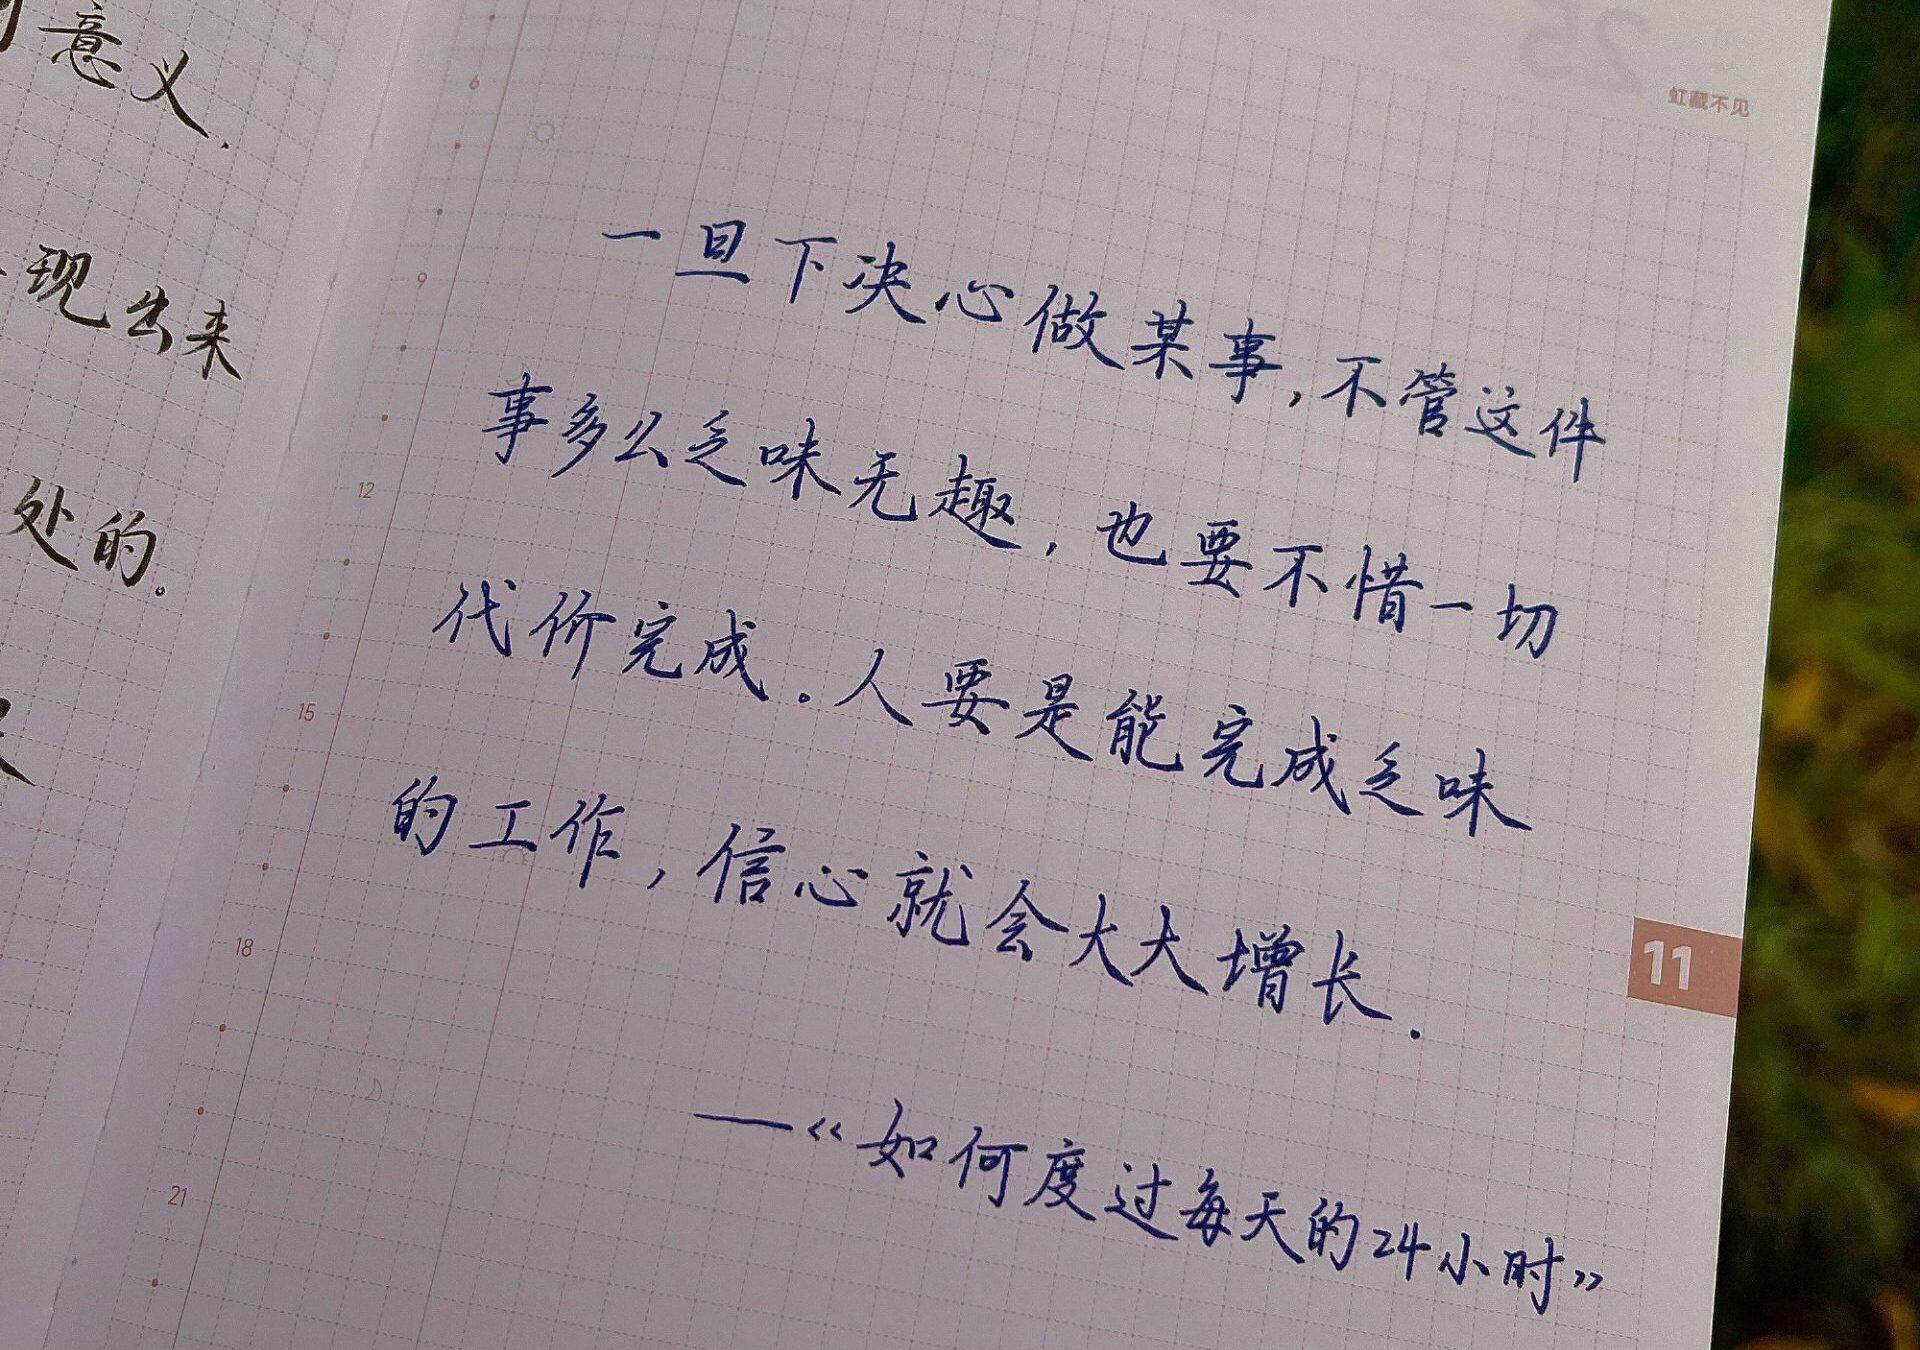 意义.
现出来
处的。
25
虹藏不见
6
9
12
15
18
21
一旦下决心做某事,不管这件
事多么乏味无趣,也要不惜一切
代价完成。人要是能完成乏味
的工作,信心就会大大增长.
—《如何度过每天的24小时》
11